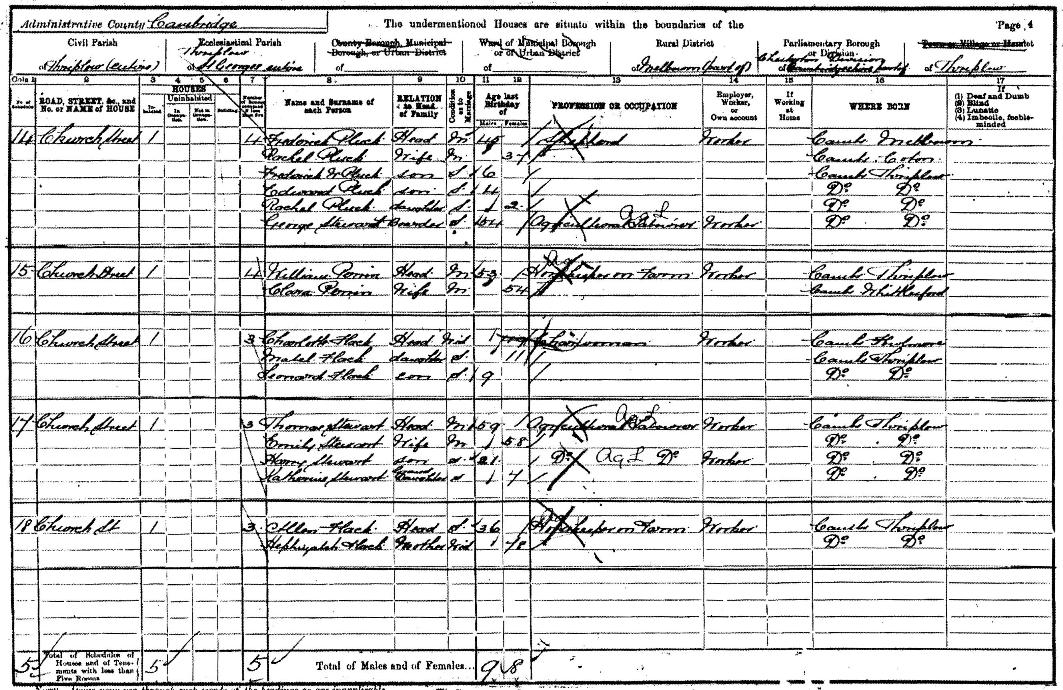 Administrative County Cambridge The undermentioned Houses are situate within the boundaries of the Page 4
Civil Parish Ecclesiastical Parish County Borough, Municipal Borough, or Urban District Ward of Municipal Borough or of Urban District Rural District Parliamentary Borough or Division Town or Village or Hamlet
of Thriplow (entire) of Thriplow St Georges entire of of of Melbourn (part of) of Chesterton Division of Thriplow
Cols 1 2 3 4 5 6 7 8 9 10 11 12 13 14 15 16 17
ROAD, STREET, &c., and No. or NAME of HOUSE HOUSES Inhabited Uninhabited Building Name and Surname of each Person RELATION to Head of Family Condition as to Marriage Age last Birthday of Males Females PROFESSION OR OCCUPATION Employer, Worker, or Own account If Working at Home WHERE BORN If (1) Deaf and Dumb (2) Blind (3) Lunatic (4) Imbecile, feeble-minded
14 Church Street 1 4 Frederick Pluck Head M Shepherd Worker Cambs Melbourn
Rachel Pluck Wife M 37 Cambs Coton
Frederick W Pluck son S 16 Cambs Thriplow
Edward Pluck son S 14 Do Do
Rachel Pluck daughter S 2 Do Do
George Stewart Boarder S 54 Agricultural Labourer Ag L Worker Do Do
15 Church Street 1 4 William Perrin Head M 53 Horsekeeper on Farm Worker Cambs Thriplow
Clara Perrin Wife M 54 Cambs Whittlesford
16 Church Street 1 3 Charlotte Flack Head Wid Charwoman Worker Cambs
Mabel Flack daughter S 11 Cambs Thriplow
Leonard Flack son S 9 Do Do
17 Church Street 1 3 Thomas Stewart Head M 59 Agricultural Labourer Ag L Worker Cambs Thriplow
Emily Stewart Wife M 58 Do Do
Harry Stewart son S 21 Do Ag L Do Worker Do Do
Katherine Stewart Grand Daughter S 7 Do Do
18 Church St 1 3 Allen Flack Head S 36 Horsekeeper on Farm Worker Cambs Thriplow
Hephzibah Flack Mother Wid 78 Do Do
5 Total of Schedules of Houses and of Tenements with less than Five Rooms 5 5 Total of Males and of Females... 9 8